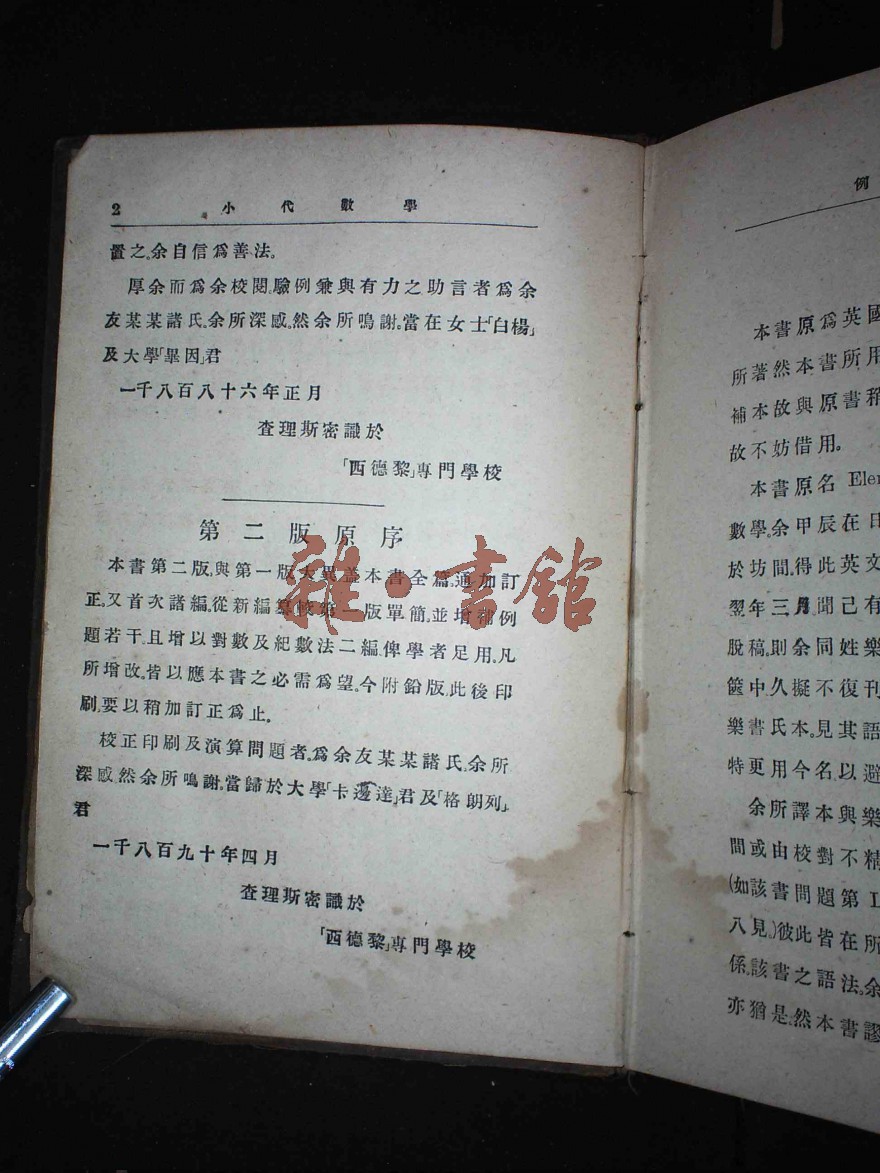 2 小代數學
置之。余自信爲善法。
厚余而爲余校閱。驗例兼與有力之助言者爲余
友某某諸氏。余所深感。然余所鳴謝。當在女士「白楊」
及大學「畢因」君
一千八百八十六年正月
查理斯密識於
「西德黎」專門學校
第二版原序
本書第二版。與第一版大異。蓋本書全篇。通加訂
正。又首次諸編。從新編纂。較第一版單簡。並增補例
題若干。且增以對數及紀數法二編。俾學者足用。凡
所增改。皆以應本書之必需爲望。今附鉛版。此後印
刷。要以稍加訂正爲止。
校正印刷及演算問題者。爲余友某某諸氏。余所
深感。然余所鳴謝。當歸於大學「卡邊達」君及「格朗列」
君
一千八百九十年四月
查理斯密識於
「西德黎」專門學校
例
本書原爲英國
所著然本書所用
補本故與原書稍
故不妨借用。
本書原名 Elem
數學。余甲辰在日
於坊間。得此英文
翌年三月。聞已有
脫稿。則余同姓樂
篋中。久擬不復刊
樂書氏本。見其語
特更用今名。以避
余所譯本與樂
間或由校對不精
(如該書問題第 L
八見。)彼此皆在所
係。該書之語法。余
亦猶是。然本書謬
雜·書館